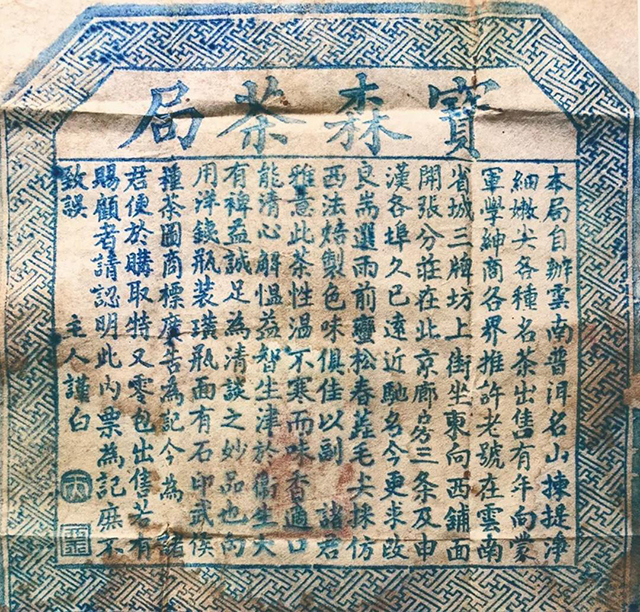 寶森茶局
本局自辦雲南普洱名山揀提淨
細嫩尖各種名茶出售有年向蒙
軍學紳商各界推許老號在雲南
省城三牌坊上街坐東向西鋪面
開張分莊在此京廊房三條及申
漢各埠久已遠近馳名今更求改
良耑選雨前蠻松春蕋毛尖採仿
西法焙製色味俱佳以副 諸君
雅意此茶性溫不寒而味香適口
能清心解慍益智生津於衞生大
有裨益誠足為清談之妙品也向
用洋鐵瓶裝璜瓶面有石印武侯
種茶圖商標廣告為記今為 諸
君便於購取特又零包出售若有
賜顧者請認明此內票為記庶不
致誤 主人謹白